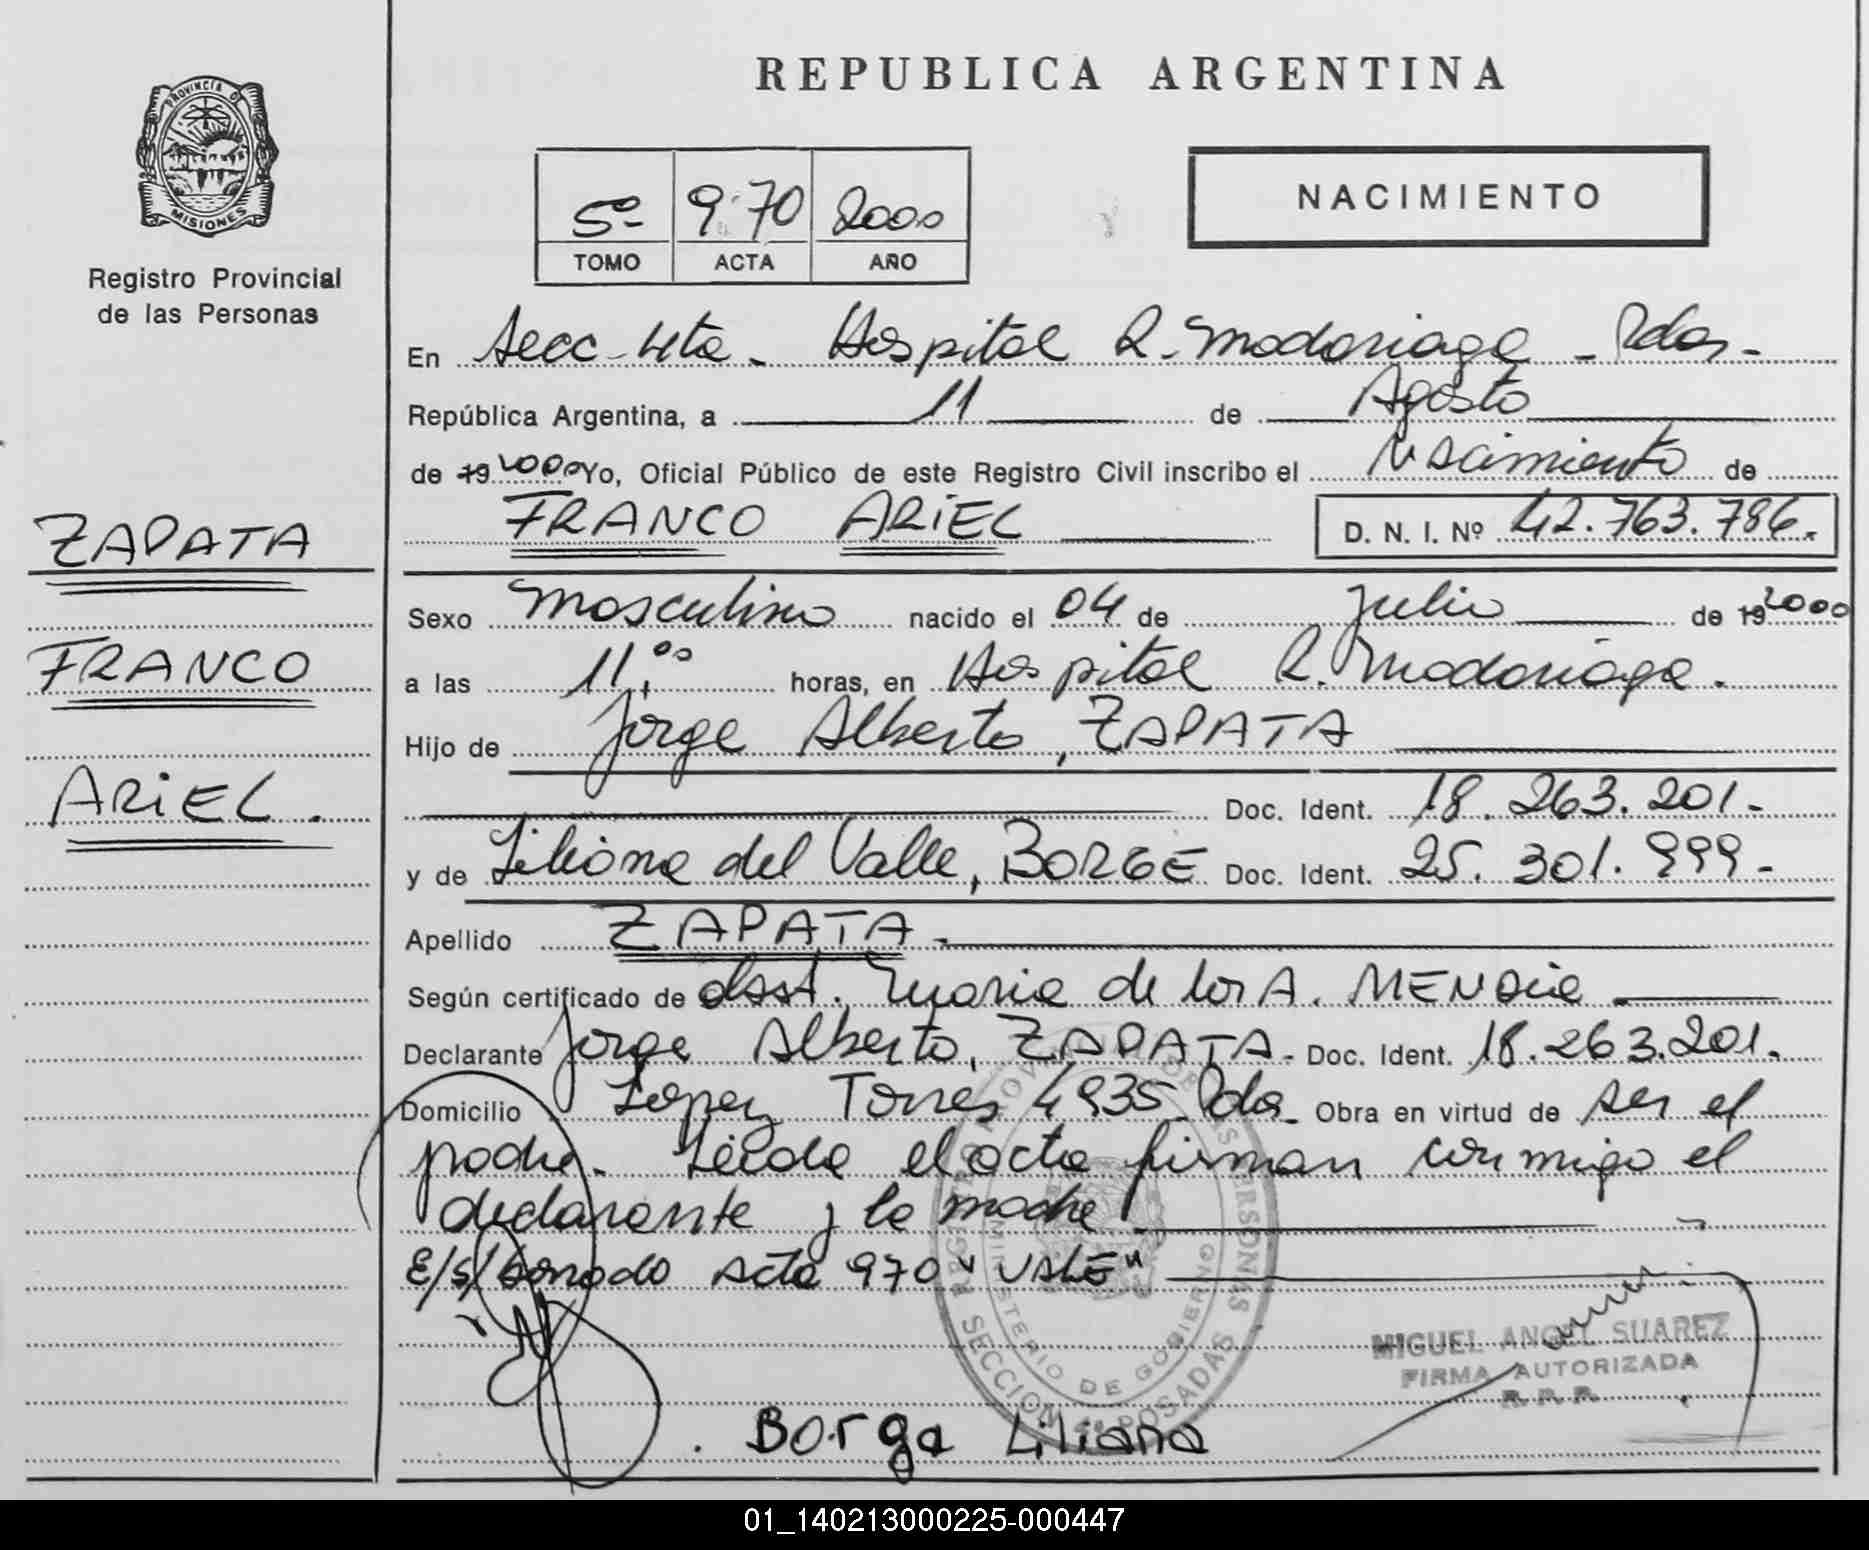 PROVINCIA DE
MISIONES
Registro Provincial
de las Personas
ZAPATA
FRANCO
ARiEL.
REPUBLICA ARGENTINA
5º- 970 2000
TOMO ACTA AÑO
NACIMIENTO
En Secc-4ta- Hospital R. Madariaga - Pdas-
República Argentina, a 11 de Agosto
de 19 2000 Yo, Oficial Público de este Registro Civil inscribo el Nacimiento de
FRANCO ARiEL D. N. I. Nº 42.763.786.
Sexo Masculino nacido el 04 de Julio de 19 2000
a las 11,00 horas, en Hospital R. Madariaga.
Hijo de Jorge Alberto, ZAPATA
Doc. Ident. 18.263.201-
y de Liliana del Valle, BORGE Doc. Ident. 25.301.999-
Apellido ZAPATA-
Según certificado de obst. Maria de los A.
Declarante Jorge Alberto, ZAPATA- Doc. Ident. 18.263.201.
Domicilio Lopez Torres 4935 Pdas- Obra en virtud de ser el
padre. Leida el acta firman conmigo el
declarante y la madre
E/s/borrado Acta 970 "VALE"
REGISTRO PROVINCIAL DE LAS PERSONAS
MINISTERIO DE GOBIERNO
SECCION 4a POSADAS
MIGUEL ANGEL SUAREZ
FIRMA AUTORIZADA
R. P. P.
Borga Liliana
01_140213000225-000447